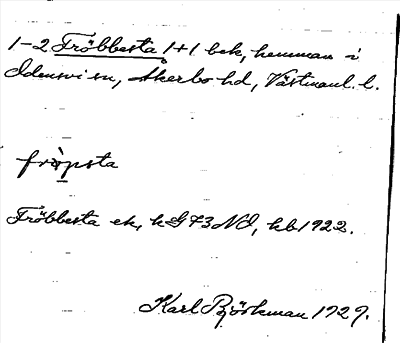 1-2 Fröbbesta 1+1 bek, hemman i
Odensvi sn, Åkerbo hd, Västmanl. l.
fröpsta
Fröbbesta ek, k G73NO, kb 1922.
Karl Björkman 1929.